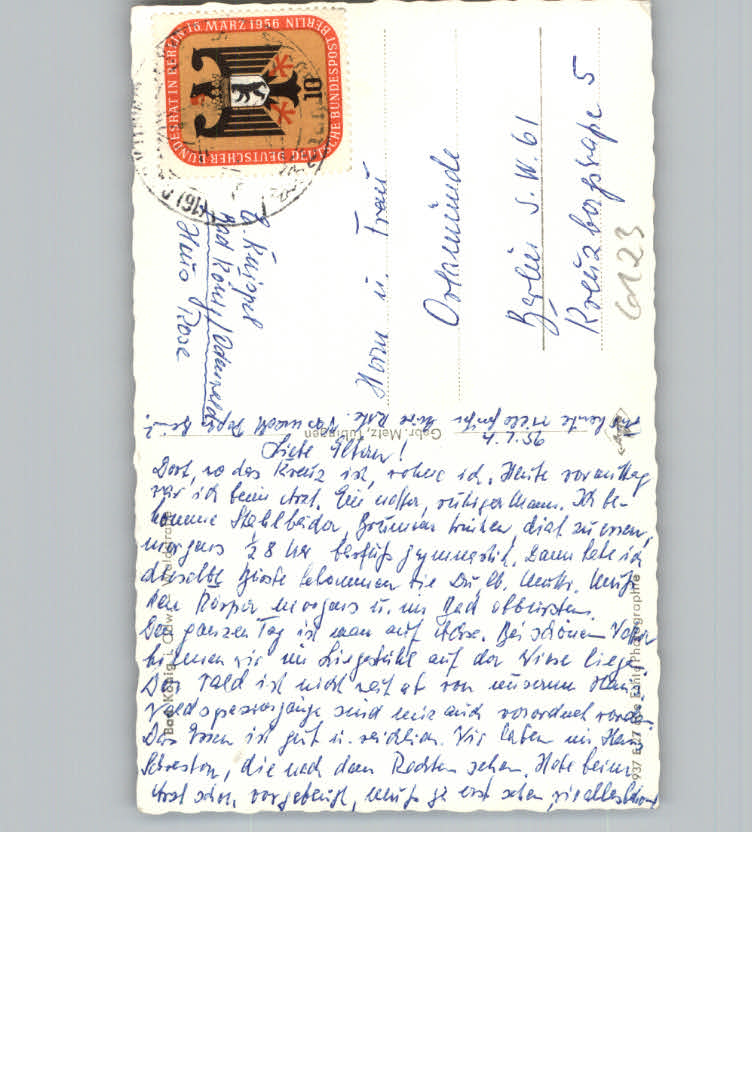 DEUTSCHER BUNDESRAT IN BERLIN · 16. MÄRZ 1956
DEUTSCHE BUNDESPOST BERLIN
10
(16)
Bad König/Odenwald
Haus Rose
Herrn u. Frau
Orlamünde
Berlin S.W. 61
Kreuzbergstraße 5
6123
Gebr. Metz, Tübingen
Bad König i. Odw.
Echte Photographie
Liebe Eltern!
Dort, wo das Kreuz ist, wohne ich. Heute vormittag
war ich beim Arzt. Ein netter, ruhiger Mann. Ich be-
komme Stahlbäder, Brunnen trinken, diät zu essen,
morgens ½ 8 Uhr barfuß gymnastik. Dann habe ich
dieselbe Bürste bekommen wie Du, lb. Mutti. Muß
den Körper morgens u. im Bad abbürsten.
Den ganzen Tag ist man auf Achse. Bei schönem Wetter
können wir im Liegestuhl auf der Wiese liegen.
Der Wald ist nicht weit ab von unserem Haus.
Waldspaziergänge sind mir auch verordnet worden.
Das Essen ist gut u. reichlich. Wir haben im Haus
Schwestern, die nach dem Rechten sehen. Habe beim
Arzt schon vorgebeugt, muß ja erst sehen, wie alles